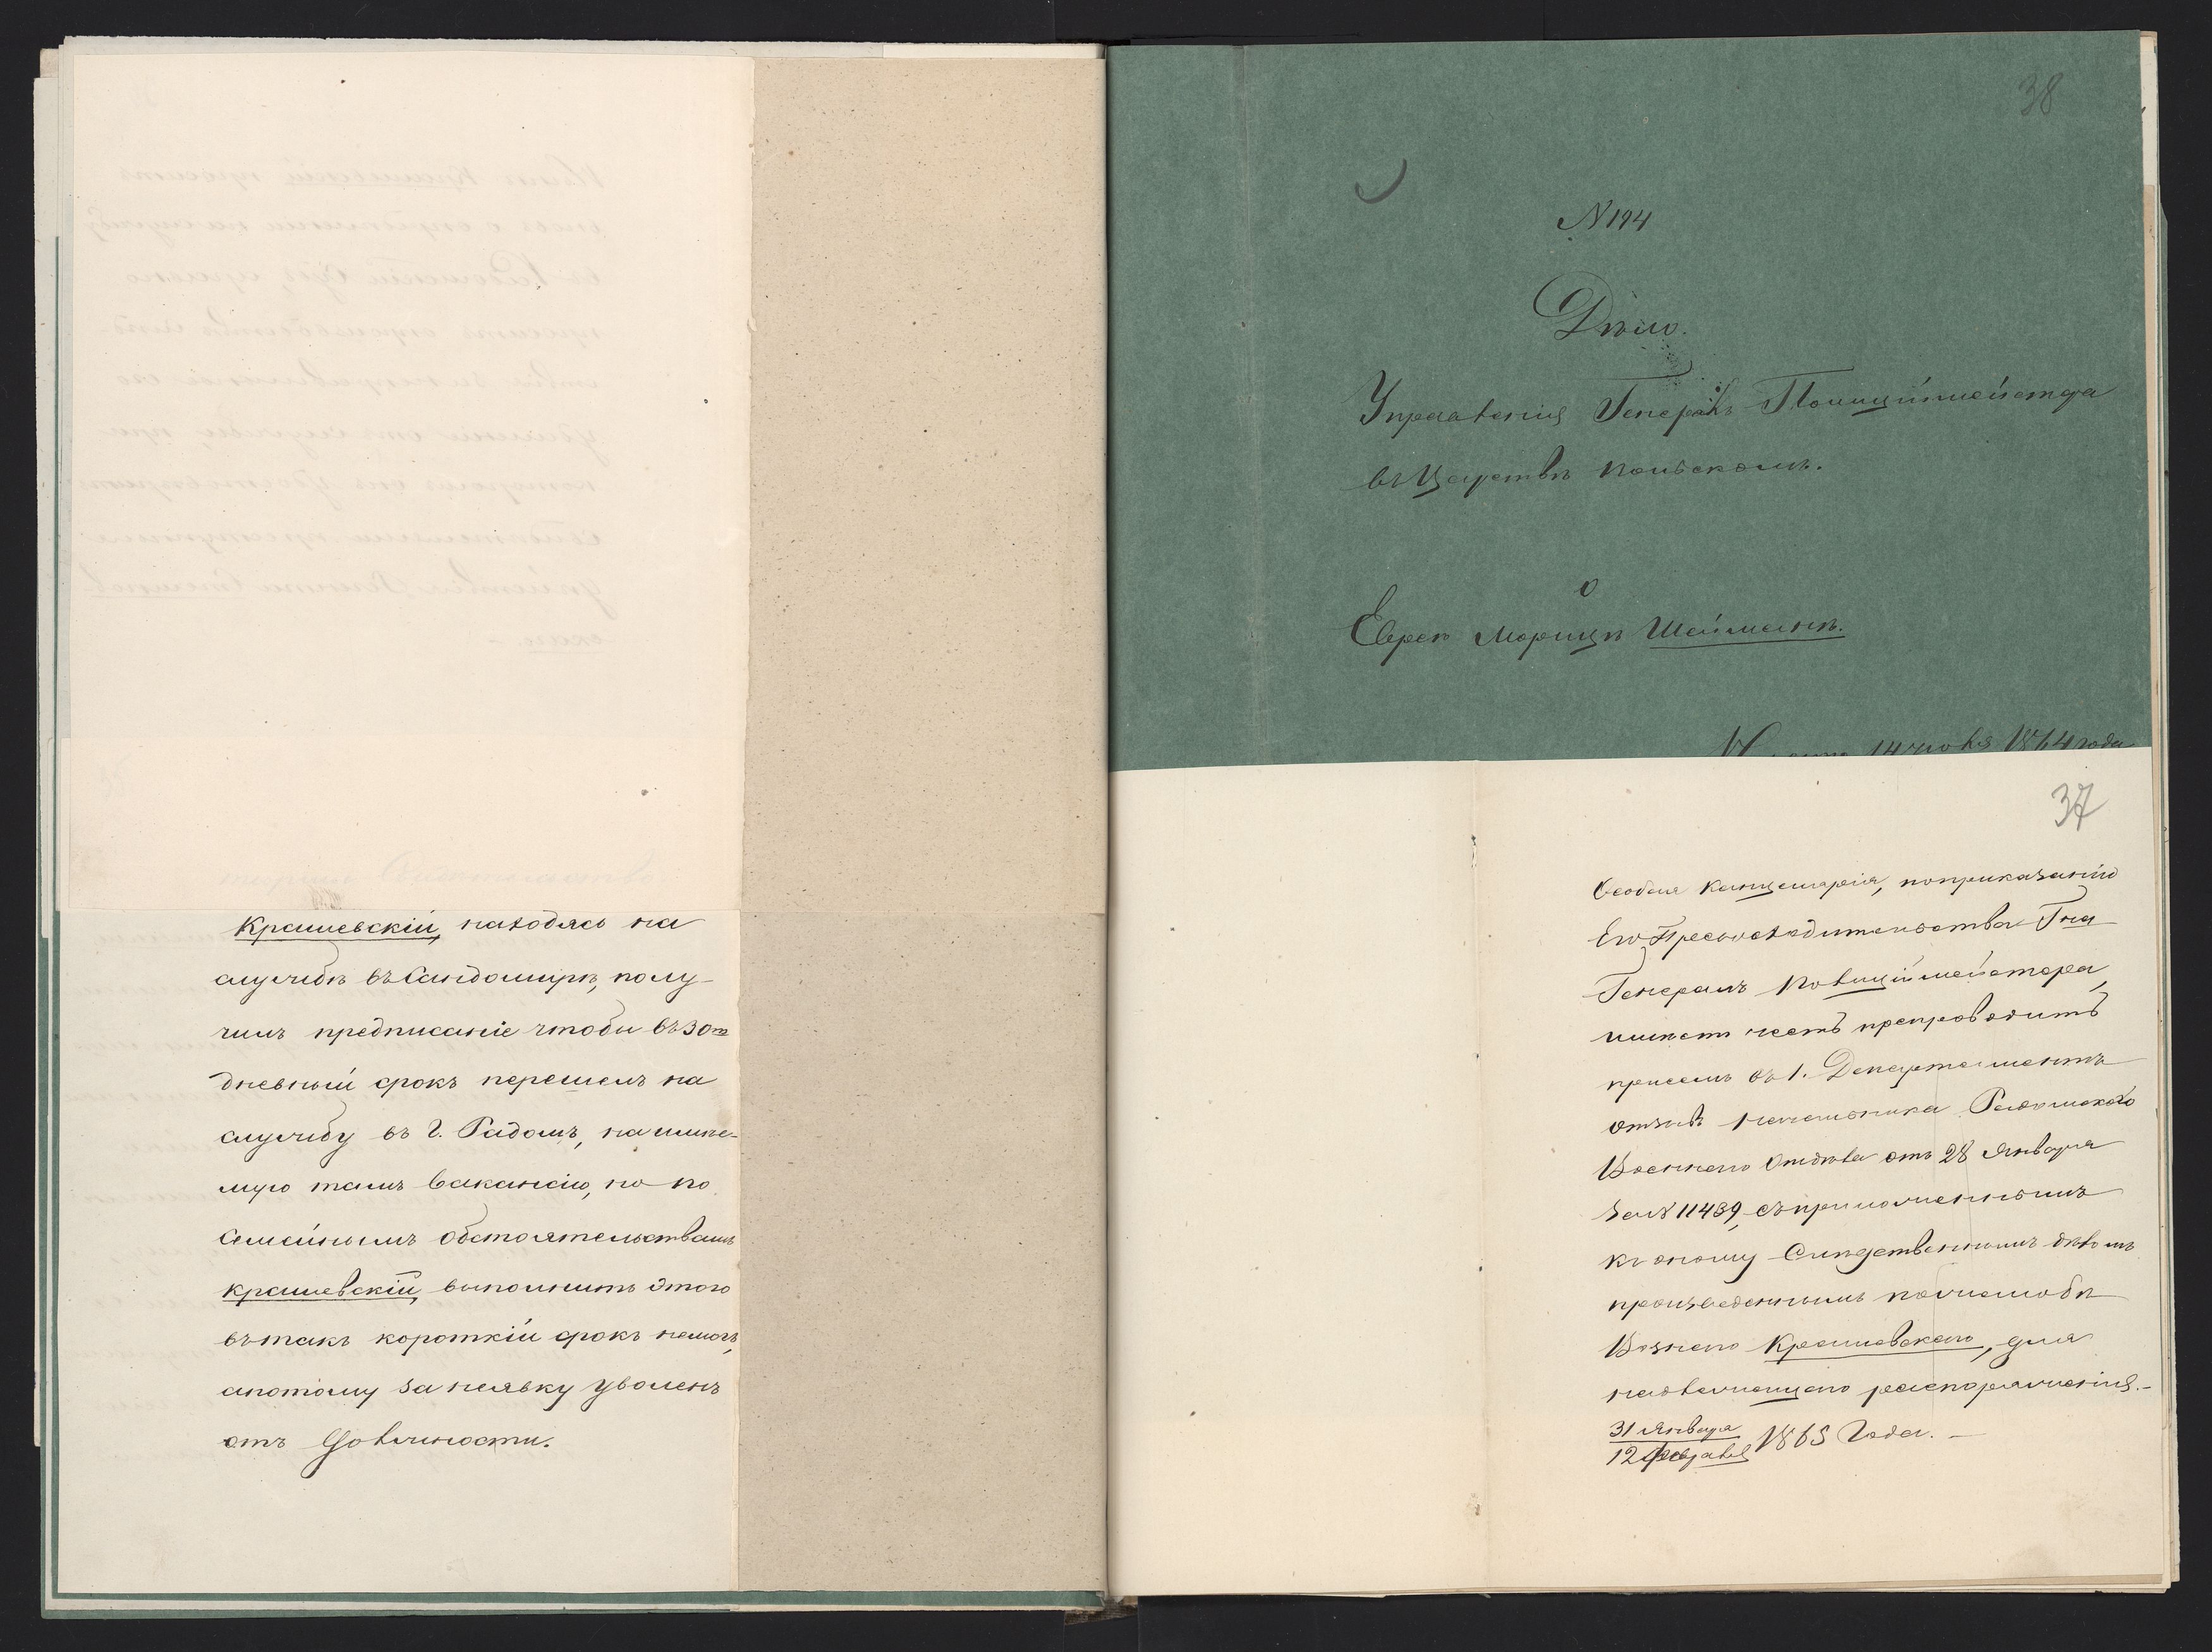 Крашевскій, находясь на
службѣ въ Сандомирѣ, полу-
чилъ предписаніе чтобы въ 30ти
дневный срокъ перешелъ на
службу въ г. Радомъ, на имѣе-
мую тамъ вакансію, но по
семейнымъ обстоятельствамъ
Крашевскій, выполнить этого
въ такъ короткій срокъ немогъ,
а потому за неявку уволенъ
отъ должности.
38
N 194
Дѣло.
Управленія Генералъ Полицiймейстера
въ Царствѣ Польскомъ.
О
Евреѣ Морицѣ Шейманѣ.
14 1864 года
37
Особая Канцелярія, по приказанію
Его Превосходительства Гна
Генералъ Полиціймейстера,
имѣетъ честь препроводить
при семъ въ 1. Департаментъ
отзывъ Начальника Радомскаго
Военнаго Отдѣла отъ 28 Января
за № 11439, съ приложеннымъ
къ оному Слѣдственнымъ дѣломъ
произведеннымъ по жалобѣ
Возного Крашевскаго, для
надлежащаго распоряженія.-
31 Января
12 Февраля 1865 Года. -